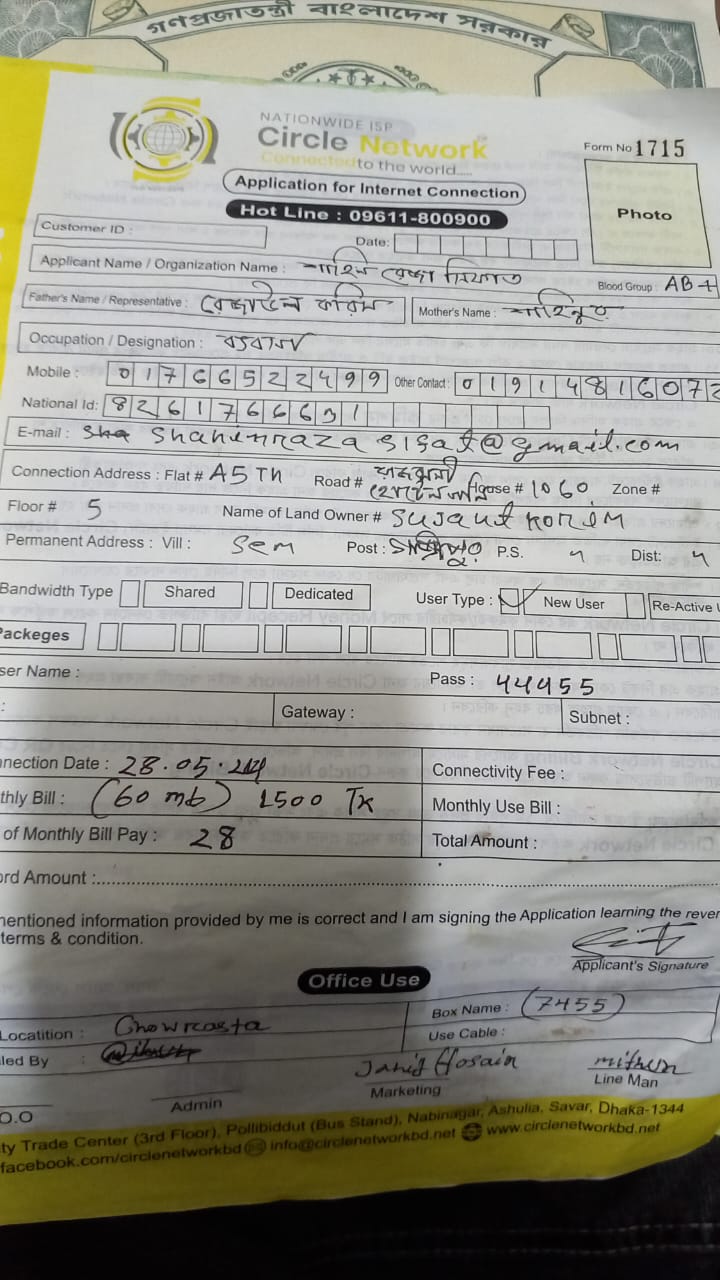 গণপ্রজাতন্ত্রী বাংলাদেশ সরকার
NATIONWIDE ISP
Circle Network
Connected to the world.....
Form No 1715
Application for Internet Connection
Hot Line : 09611-800900
Photo
Customer ID :
Date:
Applicant Name / Organization Name : শাহিন রেজা সিফাত
Blood Group : AB+
Father's Name / Representative : রেজাউল করিম Mother's Name : শাহিনুর
Occupation / Designation :
Mobile : 01766522499 Other Contact : 01914816072
National Id: 8261766631
E-mail : shahinraza sifat@gmail.com
Connection Address : Flat # A5 Th Road # House # 1060 Zone #
Floor # 5 Name of Land Owner # Sujaut Korim
Permanent Address : Vill : Sem Post : P.S. " Dist: "
Bandwidth Type Shared Dedicated User Type : New User Re-Active U
Packeges
ser Name : Pass : 44455
: Gateway : Subnet :
nnection Date : 28.05. Connectivity Fee :
thly Bill : (60 mb) 1500 Tk Monthly Use Bill :
of Monthly Bill Pay : 28 Total Amount :
ord Amount :
mentioned information provided by me is correct and I am signing the Application learning the rever
terms & condition.
Applicant's Signature
Office Use
Locatition : Chowrasta Box Name : (7455)
Use Cable :
led By : Jahid Hosain mithun
O.O Admin Marketing Line Man
ty Trade Center (3rd Floor), Pollibiddut (Bus Stand), Nabinagar, Ashulia, Savar, Dhaka-1344
facebook.com/circlenetworkbd info@circlenetworkbd.net www.circlenetworkbd.net